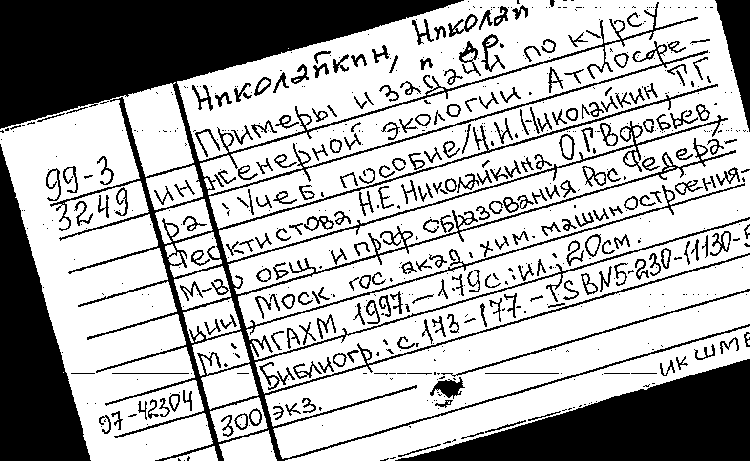 Николайкин, Николай
и др.
Примеры и задачи по курсу
99-3
инженерной экологии. Атмосфе-
3249
ра: Учеб. пособие/Н.И. Николайкин, Т.Г.
Феоктистова, Н.Е. Николайкина, О.Г. Воробьев;
М-во общ. и проф. образования Рос. Федера-
ции, Моск. гос. акад. хим. машиностроения.-
М.: МГАХМ, 1997.-179с.:ил.; 20см.
Библиогр.: с. 173-177.-ISBN5-230-11130-5
97-42304
300 экз.
ик шмв